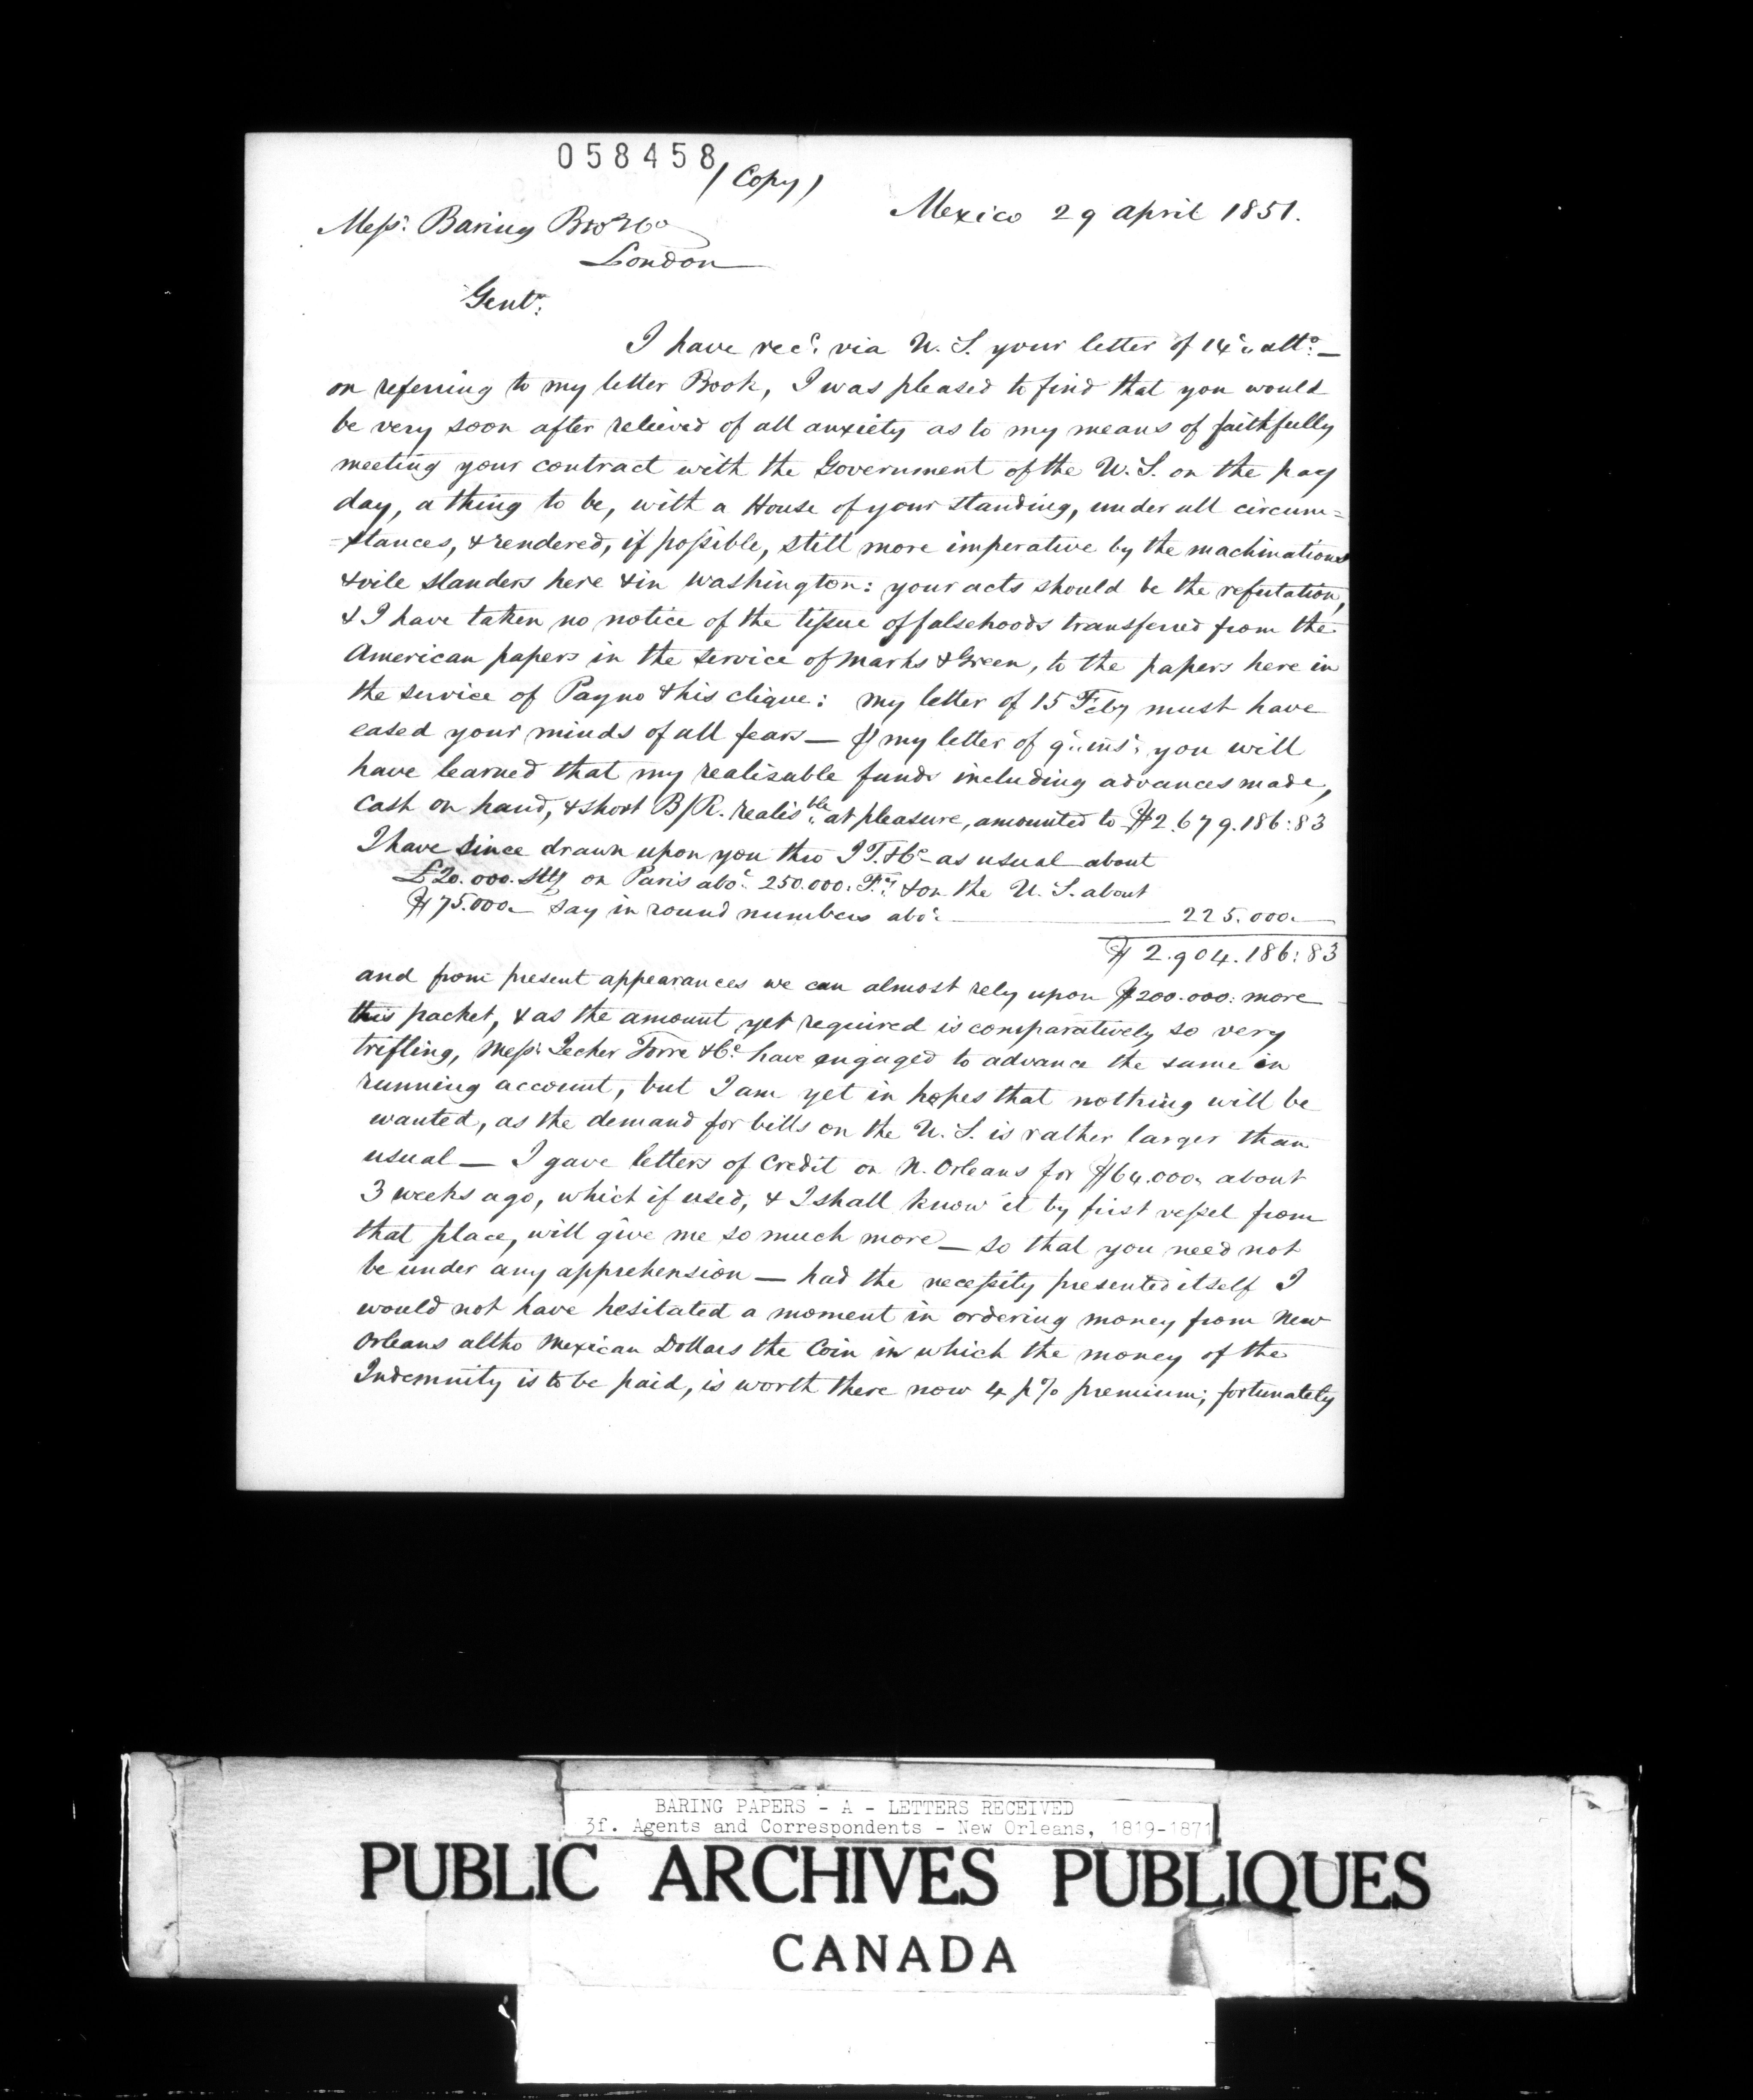 058458
(Copy)
Mexico 29 April 1851.
Messrs: Baring Bros & Co
London
Gentn:
I have recd. via U.S. your letter of 14th ulto: —
on referring to my letter Book, I was pleased to find that you would
be very soon after relieved of all anxiety as to my means of faithfully
meeting your contract with the Government of the U.S. on the pay
day, a thing to be, with a House of your standing, under all circum=
=stances, & rendered, if possible, still more imperative by the machinations
& vile slanders here & in Washington: your acts should be the refutation,
& I have taken no notice of the tissue of falsehoods transferred from the
American papers in the service of Marks & Green, to the papers here in
the service of Payno & his clique: my letter of 15 Feby must have
eased your minds of all fears — By my letter of 9th inst: you will
have learned that my realizable funds including advances made,
Cash on hand, & short B/R. realisble at pleasure, amounted to $2.679.186:83
I have since drawn upon you thro J T. & Co as usual about
£20.000. Stg on Paris abot. 250.000. Fs. & on the U.S. about
$75.000 — say in round numbers abot. — 225.000. —
$ 2.904.186:83
and from present appearances we can almost rely upon $200.000: more
this packet, & as the amount yet required is comparatively so very
trifling, Messrs Jecker Torre & Co. have engaged to advance the same in
running account, but I am yet in hopes that nothing will be
wanted, as the demand for bills on the U.S. is rather larger than
usual — I gave letters of Credit on N. Orleans for $64.000. about
3 weeks ago, which if used, & I shall know it by first vessel from
that place, will give me so much more — so that you need not
be under any apprehension — had the necessity presented itself I
would not have hesitated a moment in ordering money from New
Orleans altho Mexican Dollars the Coin in which the money of the
Indemnity is to be paid, is worth there now 4 p% premium; fortunately
BARING PAPERS - A - LETTERS RECEIVED
3f. Agents and Correspondents - New Orleans, 1819-1871
PUBLIC ARCHIVES PUBLIQUES
CANADA